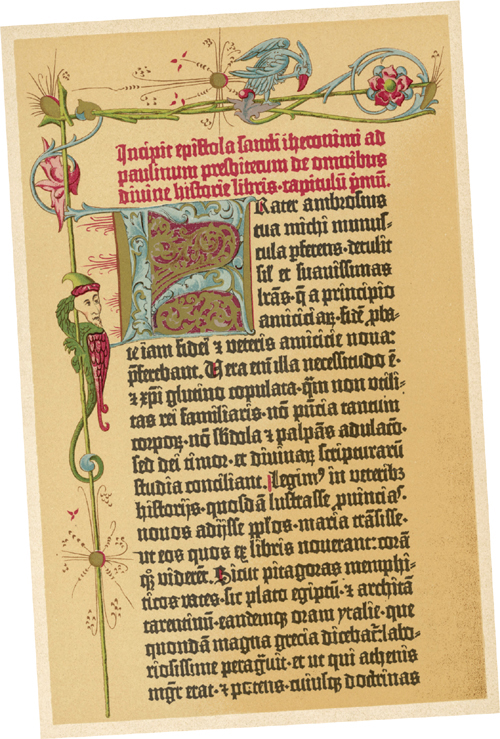 Incipit epistola sancti iheronimi ad
paulinum presbiterum de omnibus
divine historie libris·capitulū p̄mū.
Frater ambrosius
tua michi munus-
cula ꝓferens·detulit
sił et suauissimas
lr̄as·q̄ a principio
amiciciaꝝ·fidē ꝓba-
te iam fidei ⁊ veteris amicicie noua:
p̄ferebant. Uera eni illa necessitudo ē·
⁊ xp̄i glutino copulata·q̄m non utili-
tas rei familiaris·nō pn̄cia tantum
corpoꝝ·nō sb̄dola ⁊ palpās adulacō·
sed dei timor·et diuinaꝝ scripturarū
studia conciliant. Legimꝰ in veteribꝫ
historijs·quosdā lustrasse ꝓuincias·
nouos adijsse pp̄los·maria trāsisse·
ut eos quos ex libris nouerant: corā
qꝫ viderēt. Sicut pitagoras memphi-
ticos vates·sic plato egiptū·⁊ architā
tarentinū·eandemqꝫ oram ytalie·que
quondā magna grecia dicebat̄: labo-
riosissime peragᷓuit·et ut qui athenis
mgr̄ erat·⁊ potens·cuiusqꝫ doctrinas